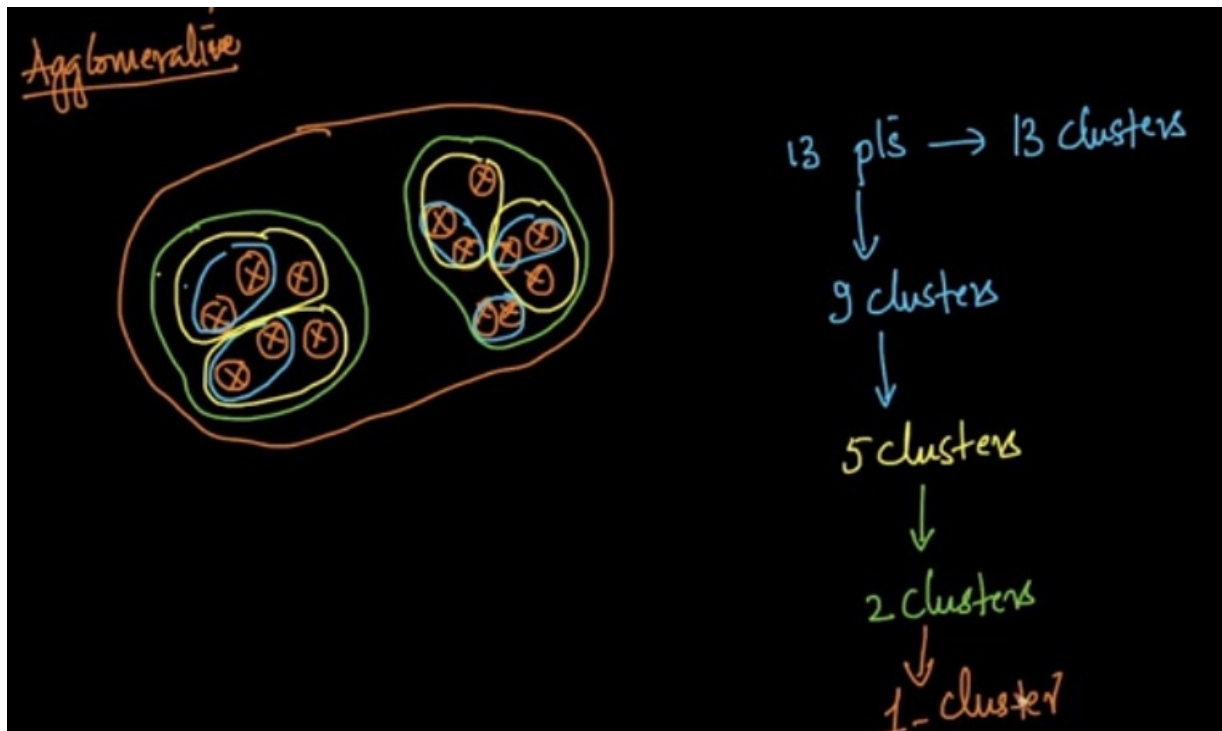 Agglomerative
13 pts → 13 clusters
9 clusters
5 clusters
2 clusters
1 - cluster